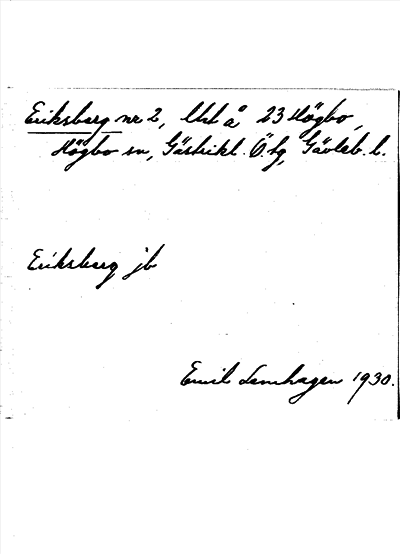 Eriksberg nr 2, Utt å 23 Högbo,
Högbo sn, Gästrikl. Ö. tg, Gävleb. l.
Eriksberg jb
Emil Lenhagen 1930.